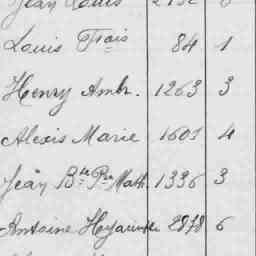 Jean Louis
Louis Frois 84 1
Henry Ambr. 1263 3
Alexis Marie 1601 4
Jean Bte Pre Math. 1336 3
Antoine Hyacinthe 2878 6